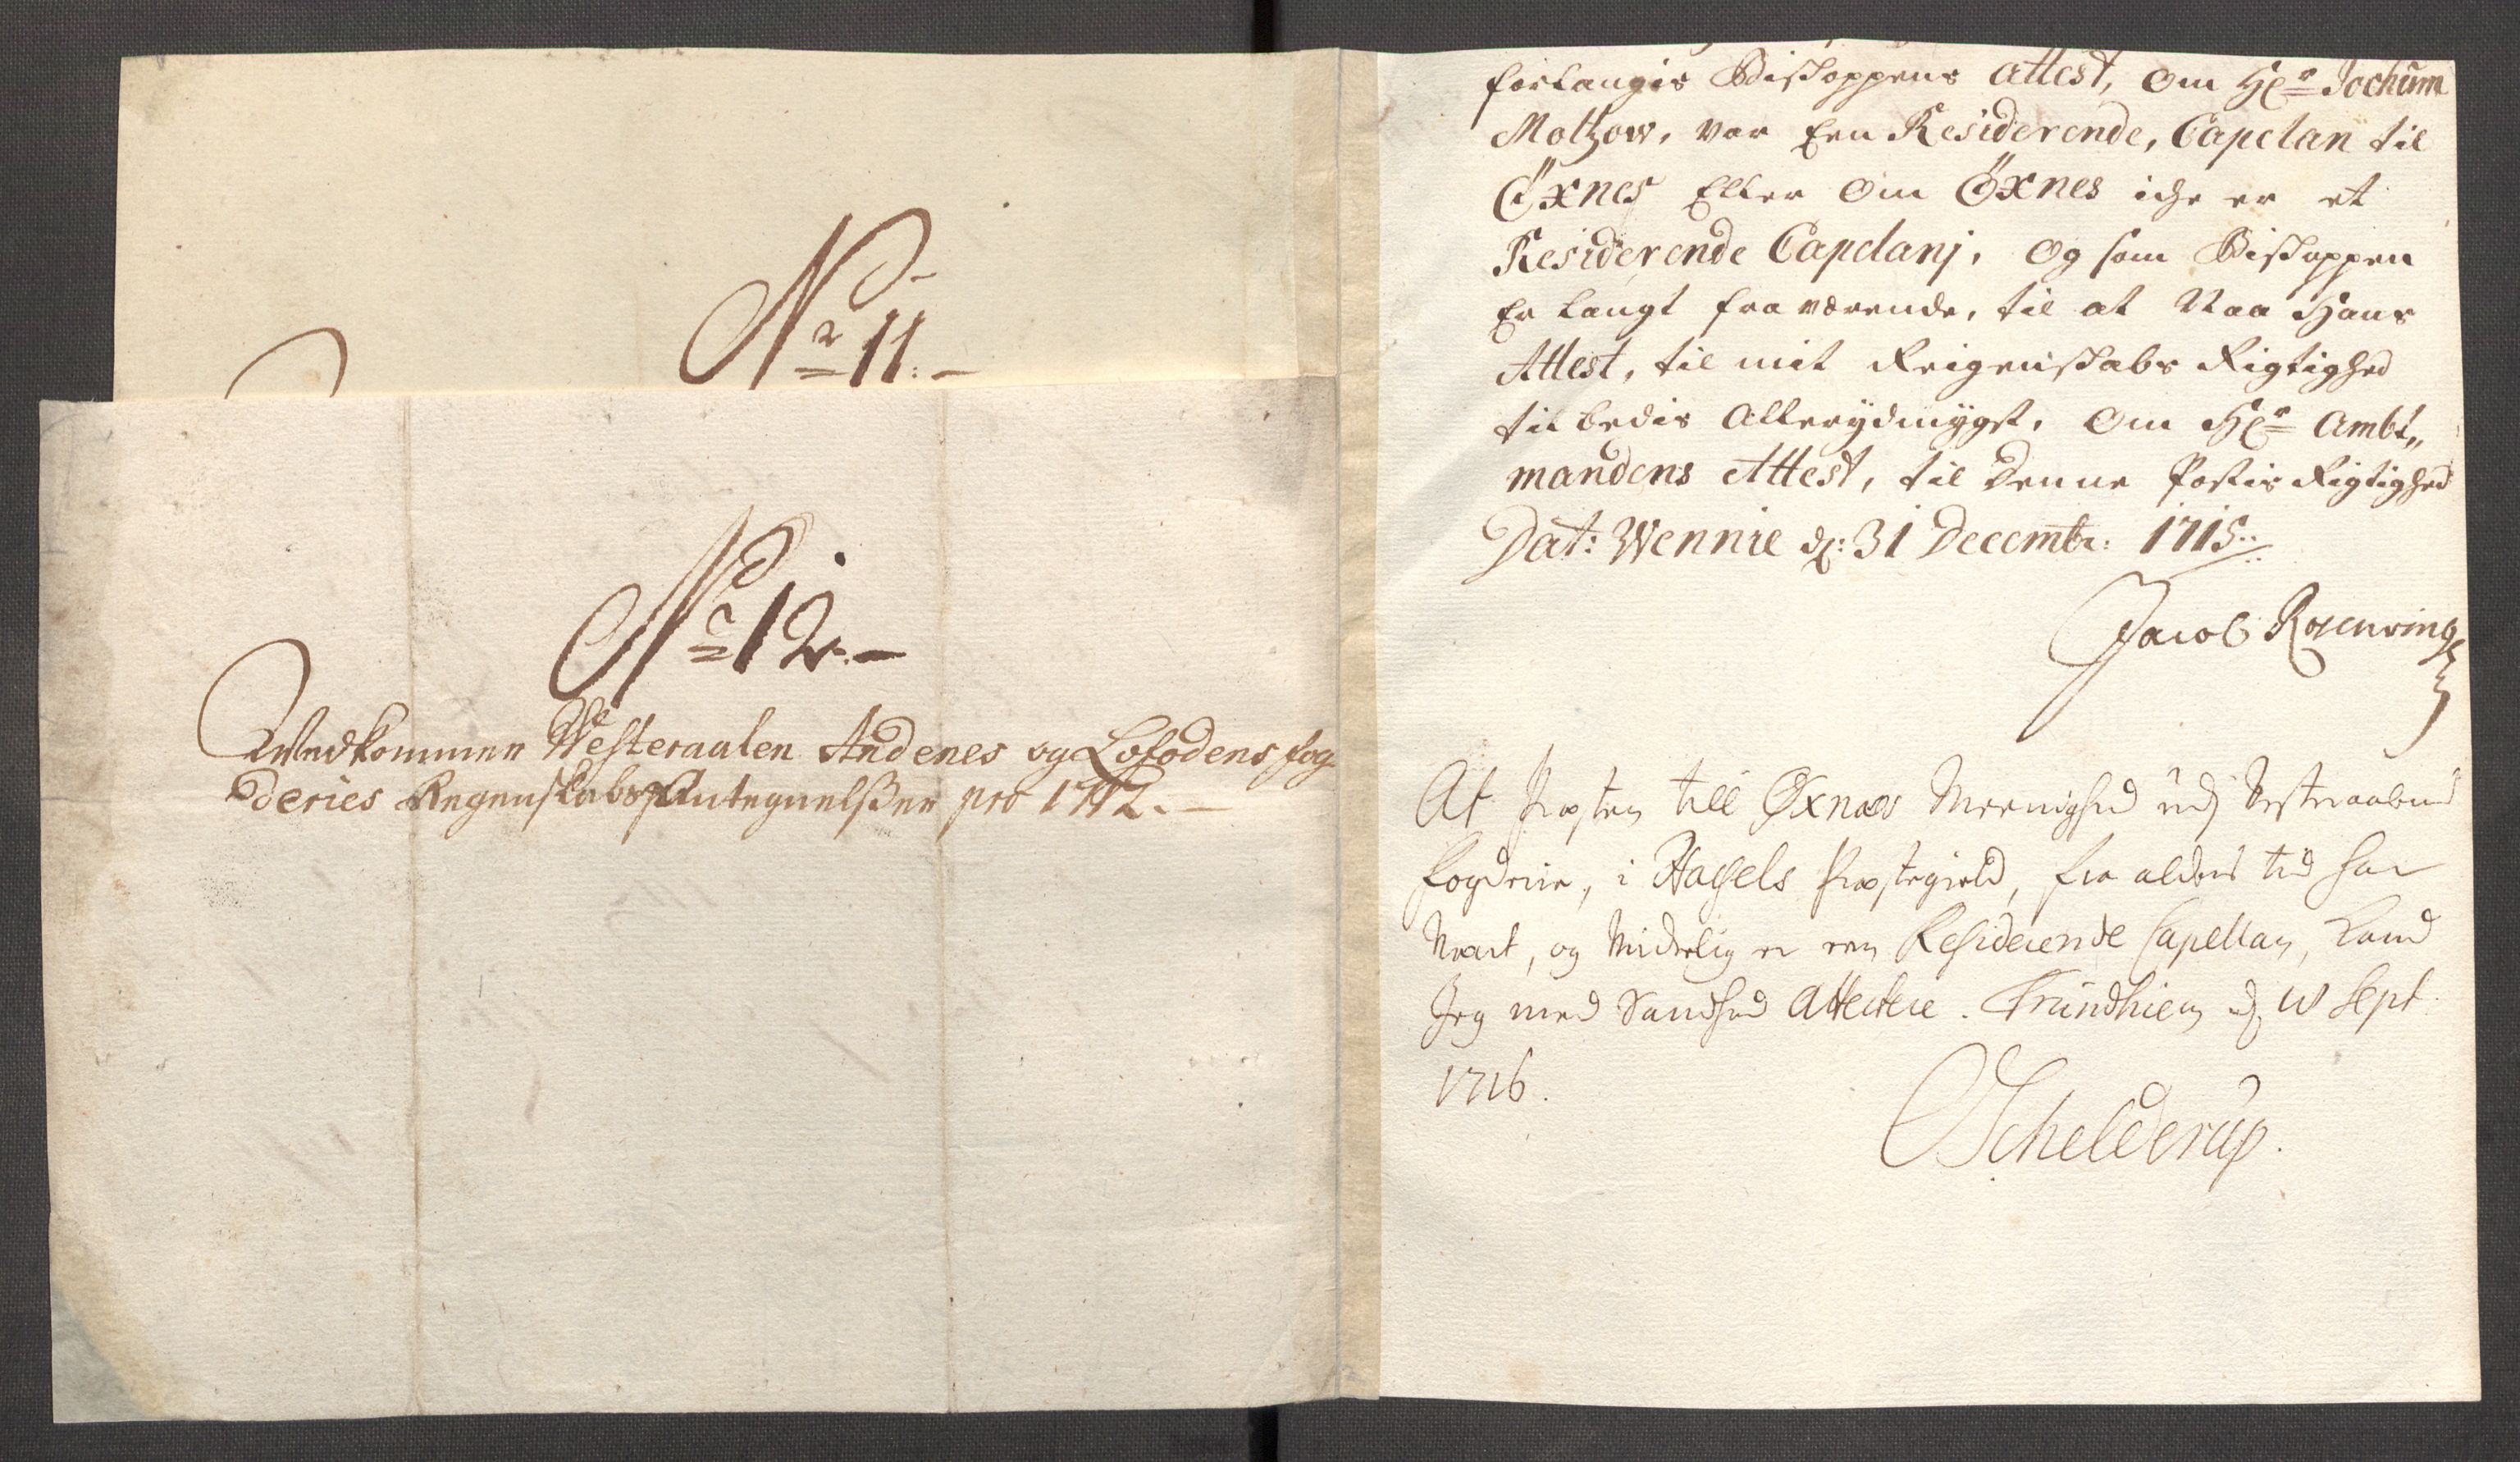 No 11.-
No 12.-
Vedkommer Westeraalen Andenes og Lofodens fog-
deries Regenskabs Antegnelsser pro 1712. -
forlangis Bischoppens Attest, om Hr Jochum
Moltzow, var Een Residerende, Capelan til
Öxnes Eller om Öxnes iche er et
Residerende Capelanj, og som Bischoppen
Er langt fra værende, til at Naa Hans
Attest, til mit Reigenschabs Rigtighed
til bedis Allerydmygst, om Hr Ambt„
mandens Attest, til denne Postis Rigtighed
Dat: Wennie d: 31 Decembr: 1715
Jacob Rosenving
At Præsten till Øxnæs Meenighed udj Vesteraalens
Fogderie, i Hassels Præstegield, fra aldens tid har
Vært, og Virkelig er een Residerende Capellan, kand
Jeg med Sandhed Attestere. Trundhiem d. Sept.
1716.
Schelderup.